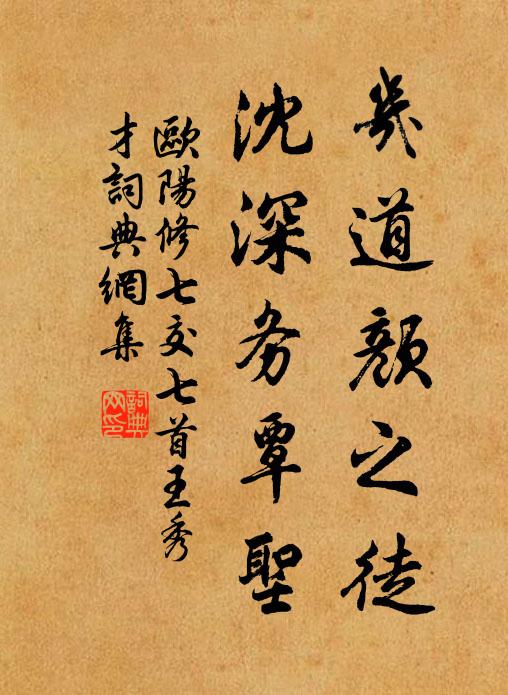 幾道顏之徒
沈深务覃聖
歐陽修七交七首王秀
才詞典網集
詞典
网印